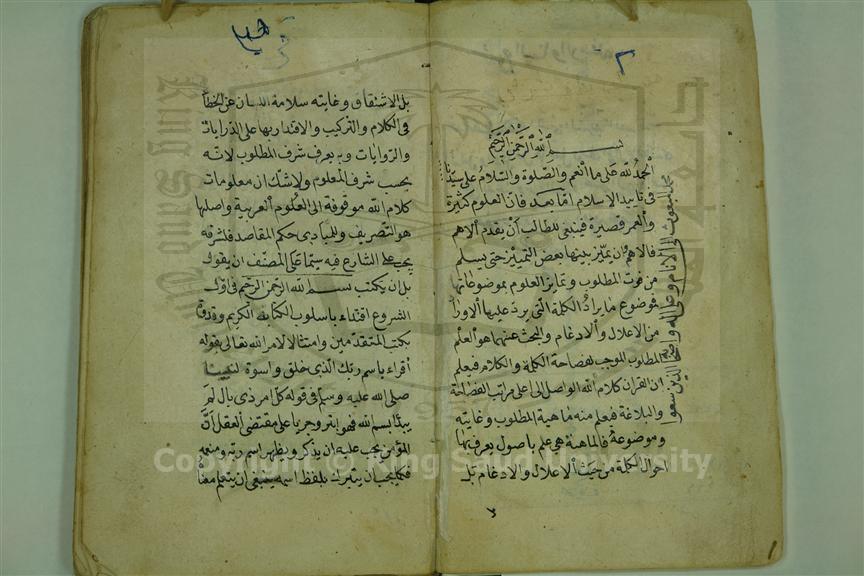 ٢
بسم الله الرحمن الرحيم
الحمد لله على ما انعم والصلوة والسلام على سيدنا
محمد المبعوث الى الانام وعلى اله واصحابه الذين سعوا
فى تاييد الاسلام اما بعد فان العلوم كثيرة
والعمر قصيرة فينبغى للطالب أن يقدم الاهم
فالاهم وان يميز بينها بعض التمييز حتى يسلم
من فوت المطلوب وتمايز العلوم بموضوعاتها
فموضوع ما يراد الكلمة التى يرد عليها الاوزان
من الاعلال والادغام والبحث عنهما هو العلم
المطلوب الموجب لفصاحة الكلمة والكلام فيعلم
ان القران كلام الله الواصل الى اعلى مراتب الفصاحة
والبلاغة فيعلم منه ماهية المطلوب وغايته
وموضوعة فالماهية هى علم باصول يعرف بها
احوال الكلمة من حيث الاعلال والادغام بل
بل الاشتقاق وغايته سلامة اللسان عن الخطأ
فى الكلام والتركيب والاقتدار بها على الدرايات
والروايات وبه يعرف شرف المطلوب لانه
بحسب شرف المعلوم ولا شك ان معلومات
كلام الله موقوفة الى العلوم العربية واصلها
هو التصريف وللمبادى حكم المقاصد فلشرفه
يجب على الشارع فيه سيما على المصنف ان يقول
بل ان يكتب بسم الله الرحمن الرحيم فى اول
الشروع اقتداء باسلوب الكتاب الكريم و
بكتب المتقدمين وامتثالا لامر الله تعالى بقوله
اقراء باسم ربك الذى خلق واسوة لنبينا
صلى الله عليه وسلم فى قوله كل امر ذى بال لم
يبدأ بسم لله فهو ابتر وجريا على مقتضى العقل لان
المؤمن يجب عليه ان يذكر ويظهر اسم ربه ومنعمه
فكما يجب ان يتبرك بلفظ اسمه ينبغى ان يتعم
Copyright © King Saud University
King Saud